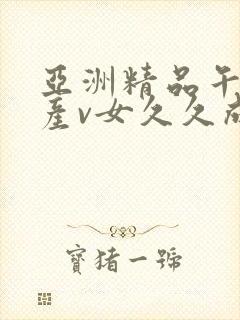 亞洲精品午
產v女久久成
寶猪一號